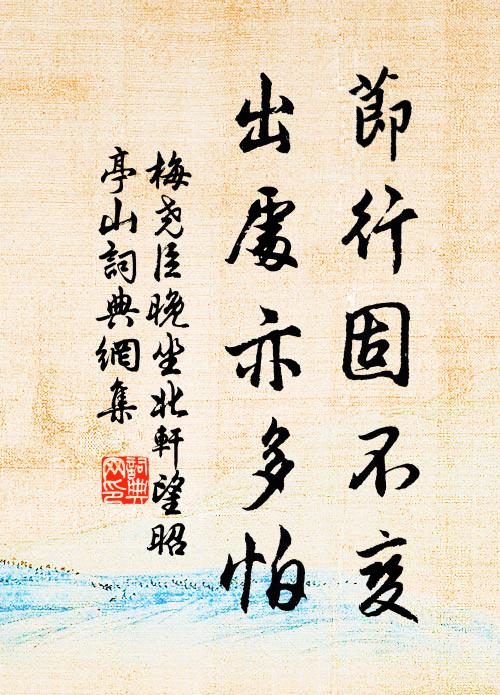 節行固不变
出處亦多怕
梅尧臣晚坐北軒望昭
亭山詞典網集
詞典
网印